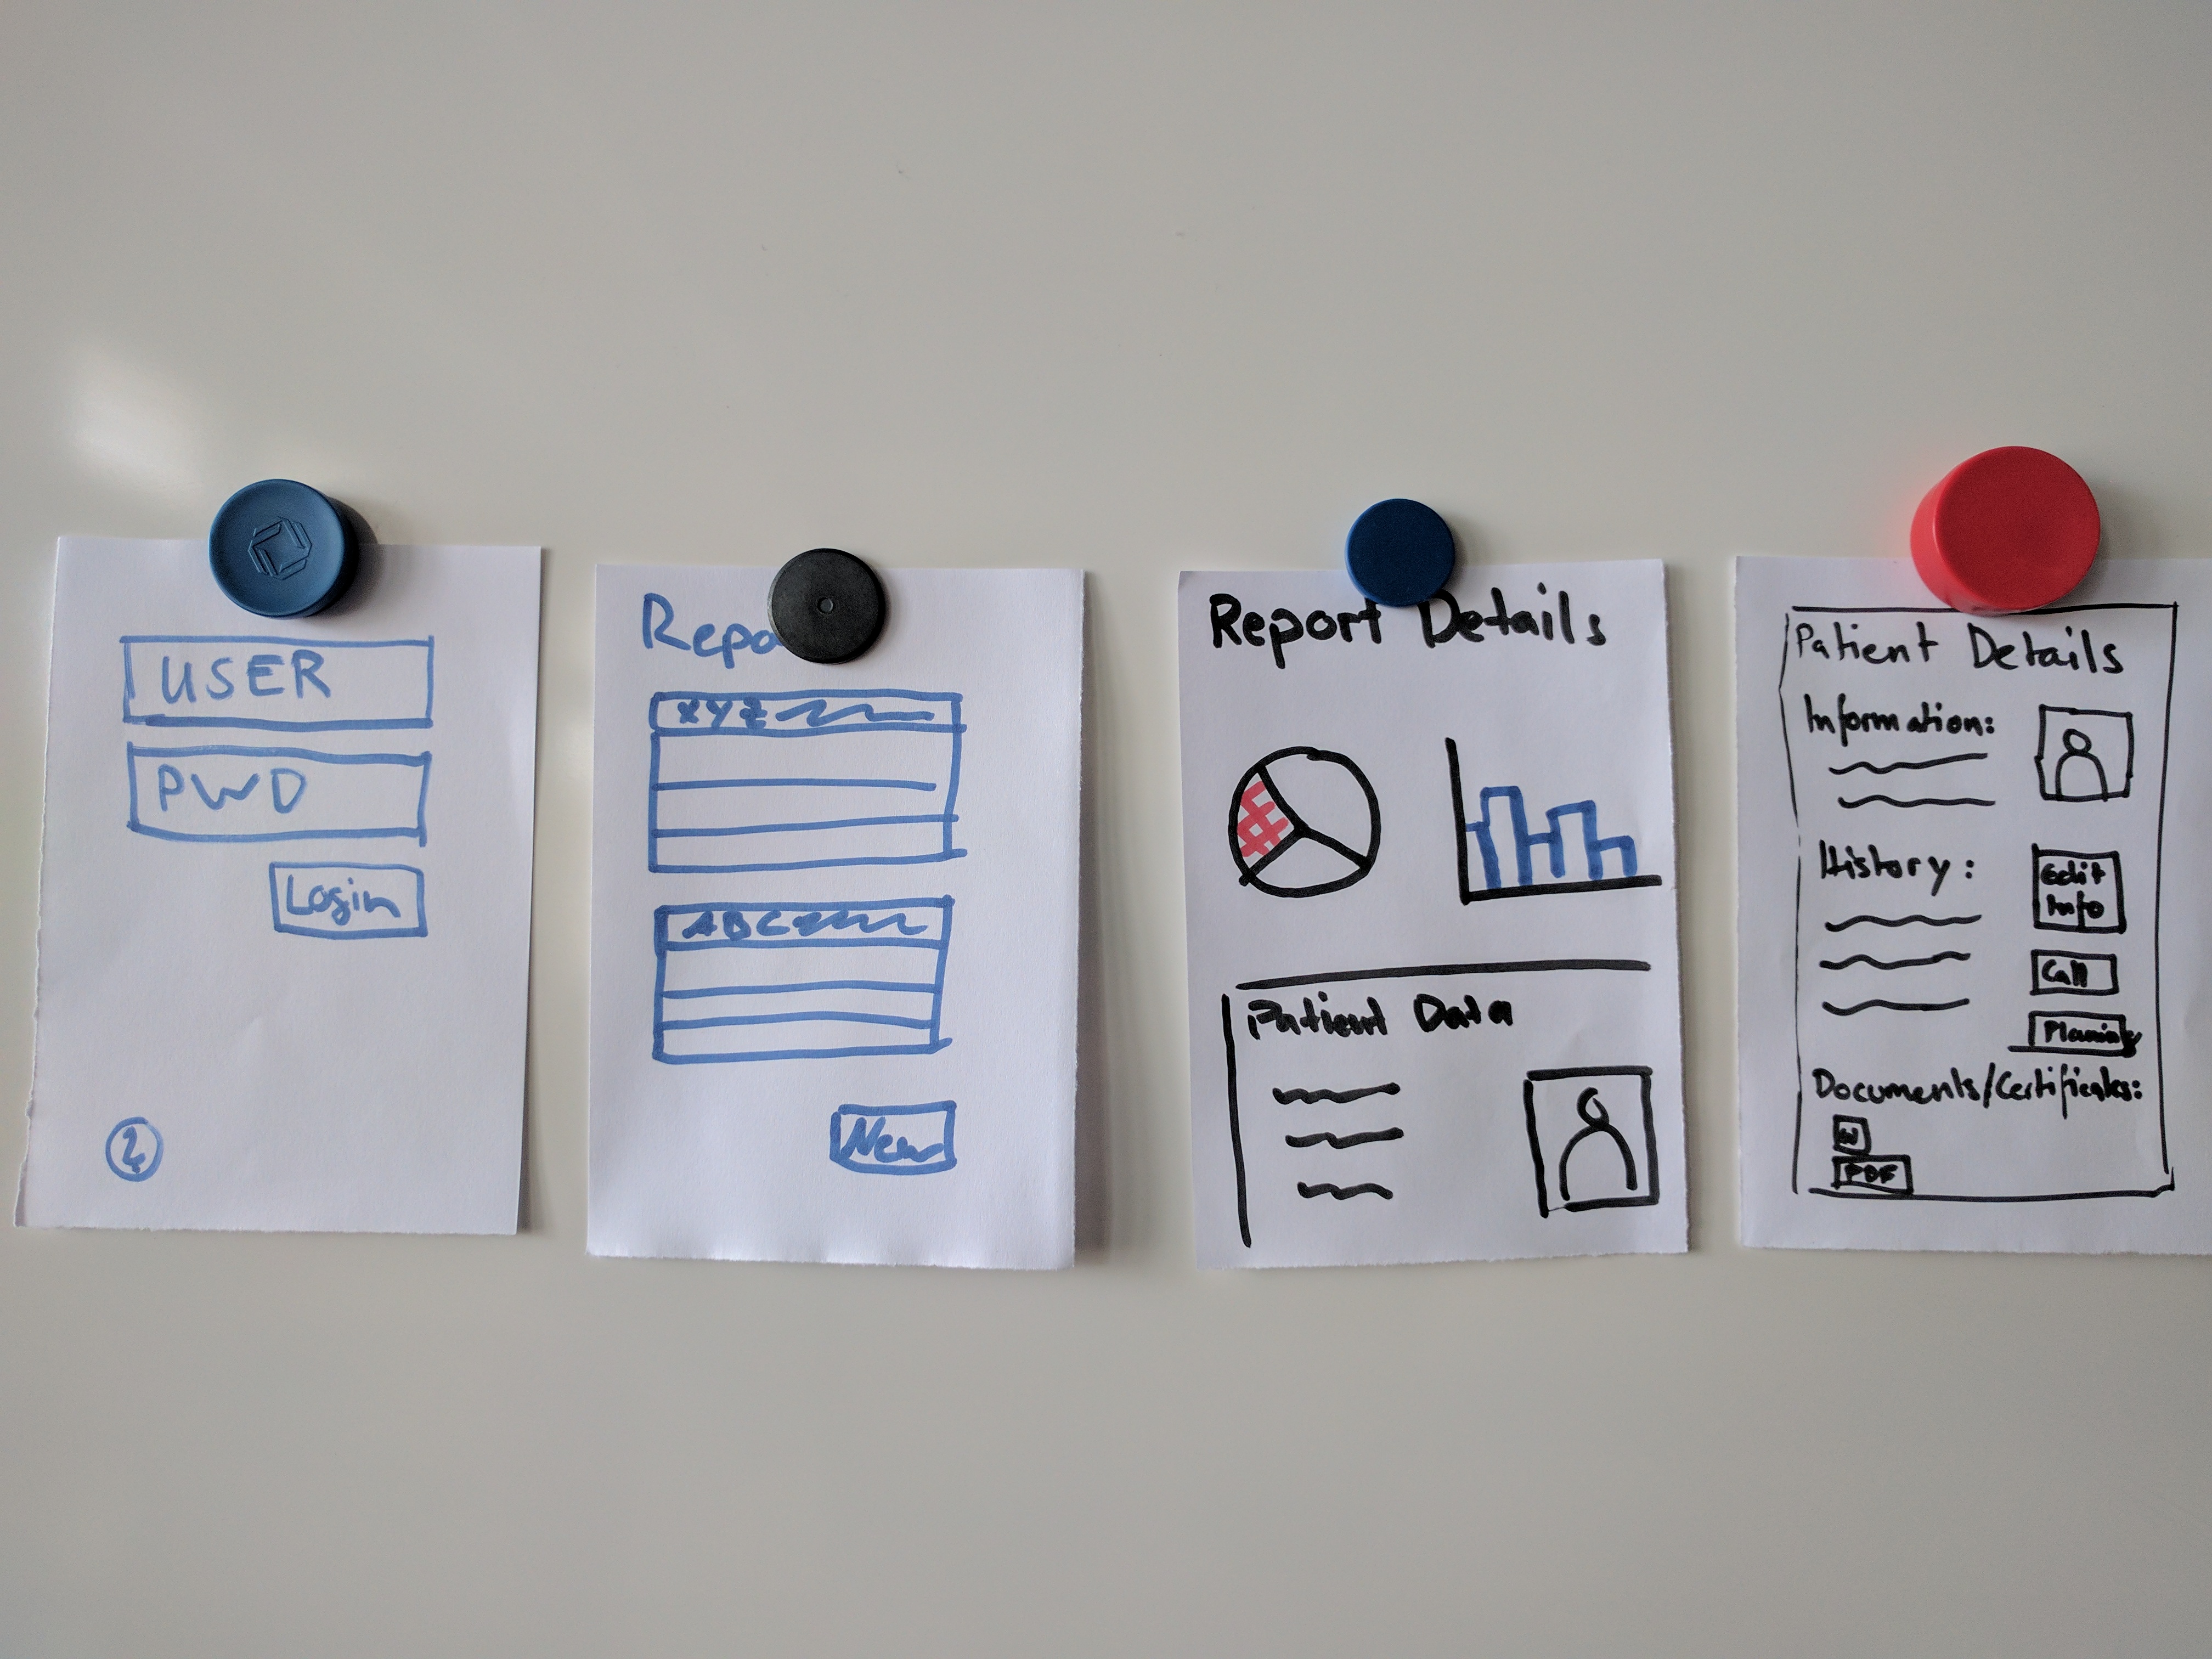 USER
PWD
Login
Repo
XYZ
ABC
New
Report Details
Patient Data
Patient Details
Information:
History:
Edit
Info
Call
Planning
Documents/Certificates:
W
PDF